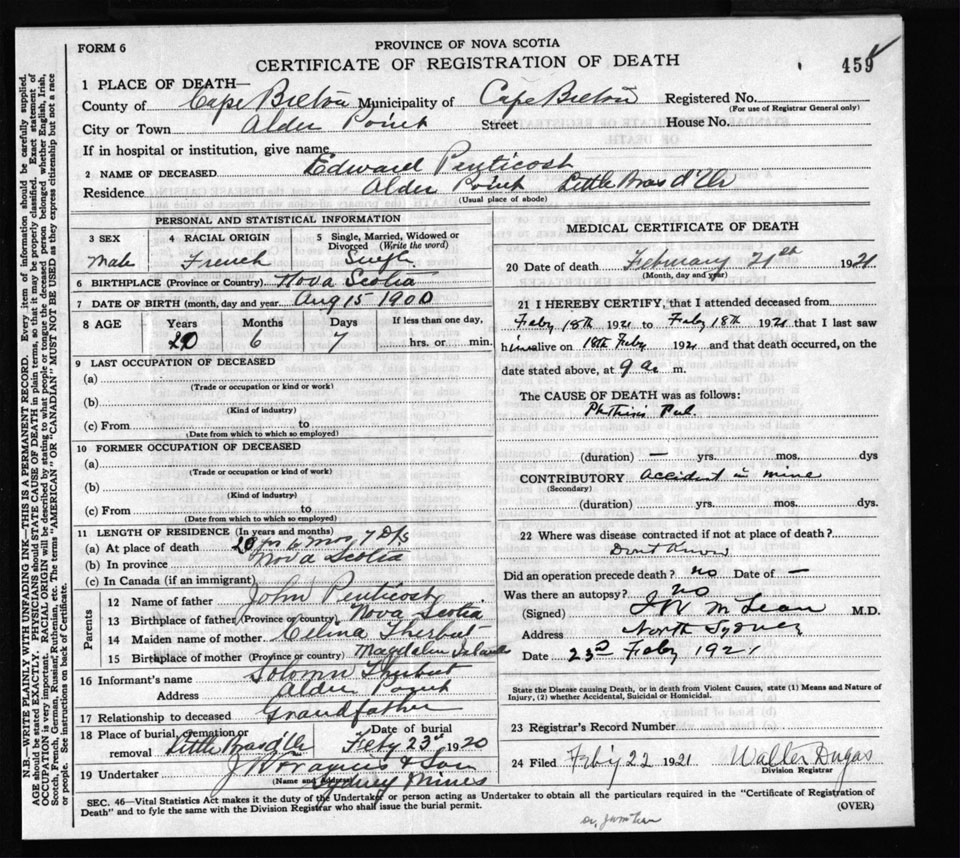 FORM 6
PROVINCE OF NOVA SCOTIA
CERTIFICATE OF REGISTRATION OF DEATH
459
1 PLACE OF DEATH—
County of Cape Breton Municipality of Cape Breton Registered No.
(For use of Registrar General only)
City or Town Alder Point Street House No.
If in hospital or institution, give name
2 NAME OF DECEASED Edward Penticost
Residence Alder Point Little Bras d'Or
(Usual place of abode)
PERSONAL AND STATISTICAL INFORMATION
3 SEX 4 RACIAL ORIGIN 5 Single, Married, Widowed or Divorced (Write the word)
Male French Single
6 BIRTHPLACE (Province or Country) Nova Scotia
7 DATE OF BIRTH (month, day and year) Aug 15 1900
8 AGE Years Months Days If less than one day,
20 6 7 hrs. or min.
9 LAST OCCUPATION OF DECEASED
(a)
(Trade or occupation or kind of work)
(b)
(Kind of industry)
(c) From to
(Date from which to which so employed)
10 FORMER OCCUPATION OF DECEASED
(a)
(Trade or occupation or kind of work)
(b)
(Kind of industry)
(c) From to
(Date from which to which so employed)
11 LENGTH OF RESIDENCE (in years and months)
(a) At place of death 20 yrs 6 mos 7 Dys
(b) In province Nova Scotia
(c) In Canada (if an immigrant)
Parents
12 Name of father John Penticost
13 Birthplace of father (Province or country) Nova Scotia
14 Maiden name of mother Celina Therbut
15 Birthplace of mother (Province or country) Magdalin Islands
16 Informant's name Solomn Therbut
Address Alder Point
17 Relationship to deceased Grandfather
18 Place of burial, cremation or removal Little Bras d'Or Date of burial Feby 23rd 1920
19 Undertaker & Son
(Name and Address) Sydney Mines
MEDICAL CERTIFICATE OF DEATH
20 Date of death February 21st 1921
(Month, day and year)
21 I HEREBY CERTIFY, that I attended deceased from
Feby 18th 1921 to Feby 18th 1921 that I last saw
him alive on 18th Feby 1921 and that death occurred, on the
date stated above, at 9 a m.
The CAUSE OF DEATH was as follows:
Phthisis Pul.
(duration) — yrs. mos. dys
CONTRIBUTORY Accident in mine
(Secondary)
(duration) yrs. mos. dys.
22 Where was disease contracted if not at place of death?
Don't know
Did an operation precede death? no Date of —
Was there an autopsy? no
(Signed) McLean M.D.
Address North Sydney
Date 23rd Feby 1921
State the Disease causing Death, or in death from Violent Causes, state (1) Means and Nature of
Injury, (2) whether Accidental, Suicidal or Homicidal.
23 Registrar's Record Number
24 Filed Feby 22 1921 Walter Dugas
Division Registrar
SEC. 46—Vital Statistics Act makes it the duty of the Undertaker or person acting as Undertaker to obtain all the particulars required in the "Certificate of Registration of
Death" and to fyle the same with the Division Registrar who shall issue the burial permit.
(OVER)
N.B.—WRITE PLAINLY WITH UNFADING INK—THIS IS A PERMANENT RECORD. Every item of information should be carefully supplied.
AGE should be stated EXACTLY. PHYSICIANS should STATE CAUSE OF DEATH in plain terms, so that it may be properly classified. Exact statement of
OCCUPATION is very important. RACIAL ORIGIN will be described by stating to what people or tongue the deceased person belonged whether English, Irish,
Scotch, French, German, Russian, Ruthenian, etc. The terms "AMERICAN" OR "CANADIAN" MUST NOT BE USED as they express citizenship but not a race
or people. See instructions on back of Certificate.